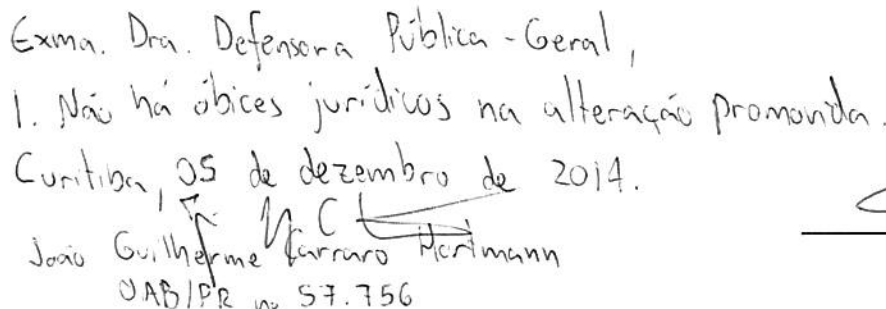 Exma. Dra. Defensora Pública-Geral,
1. Não há óbices jurídicos na alteração promovida.
Curitiba, 05 de dezembro de 2014.
João Guilherme Carraro Hortmann
OAB/PR nº 57.756